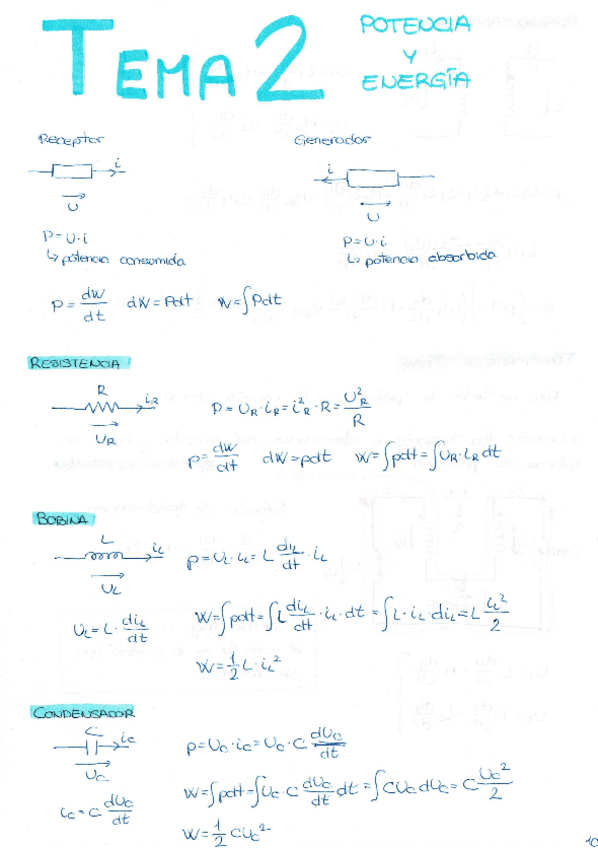 TEMA 2
POTENCIA
Y
ENERGÍA
Receptor
Generador
i
i
U
U
P=U·i
↳ potencia consumida
P=U·i
↳ potencia absorbida
P=dW/dt dW=Pdt W=∫Pdt
RESISTENCIA
R
i_R
U_R
P=U_R·i_R=i_R²·R=U_R²/R
P=dW/dt dW=pdt W=∫pdt=∫U_R·i_R dt
BOBINA
L
i_L
U_L
P=U_L·i_L=L di_L/dt·i_L
U_L=L·di_L/dt
W=∫pdt=∫L di_L/dt·i_L·dt=∫L·i_L di_L=L i_L²/2
W=1/2 L·i_L²
CONDENSADOR
C
i_C
U_C
P=U_C·i_C=U_C·C dU_C/dt
i_C=C dU_C/dt
W=∫pdt=∫U_C·C dU_C/dt dt=∫CU_C dU_C=C U_C²/2
W=1/2 CU_C²
10